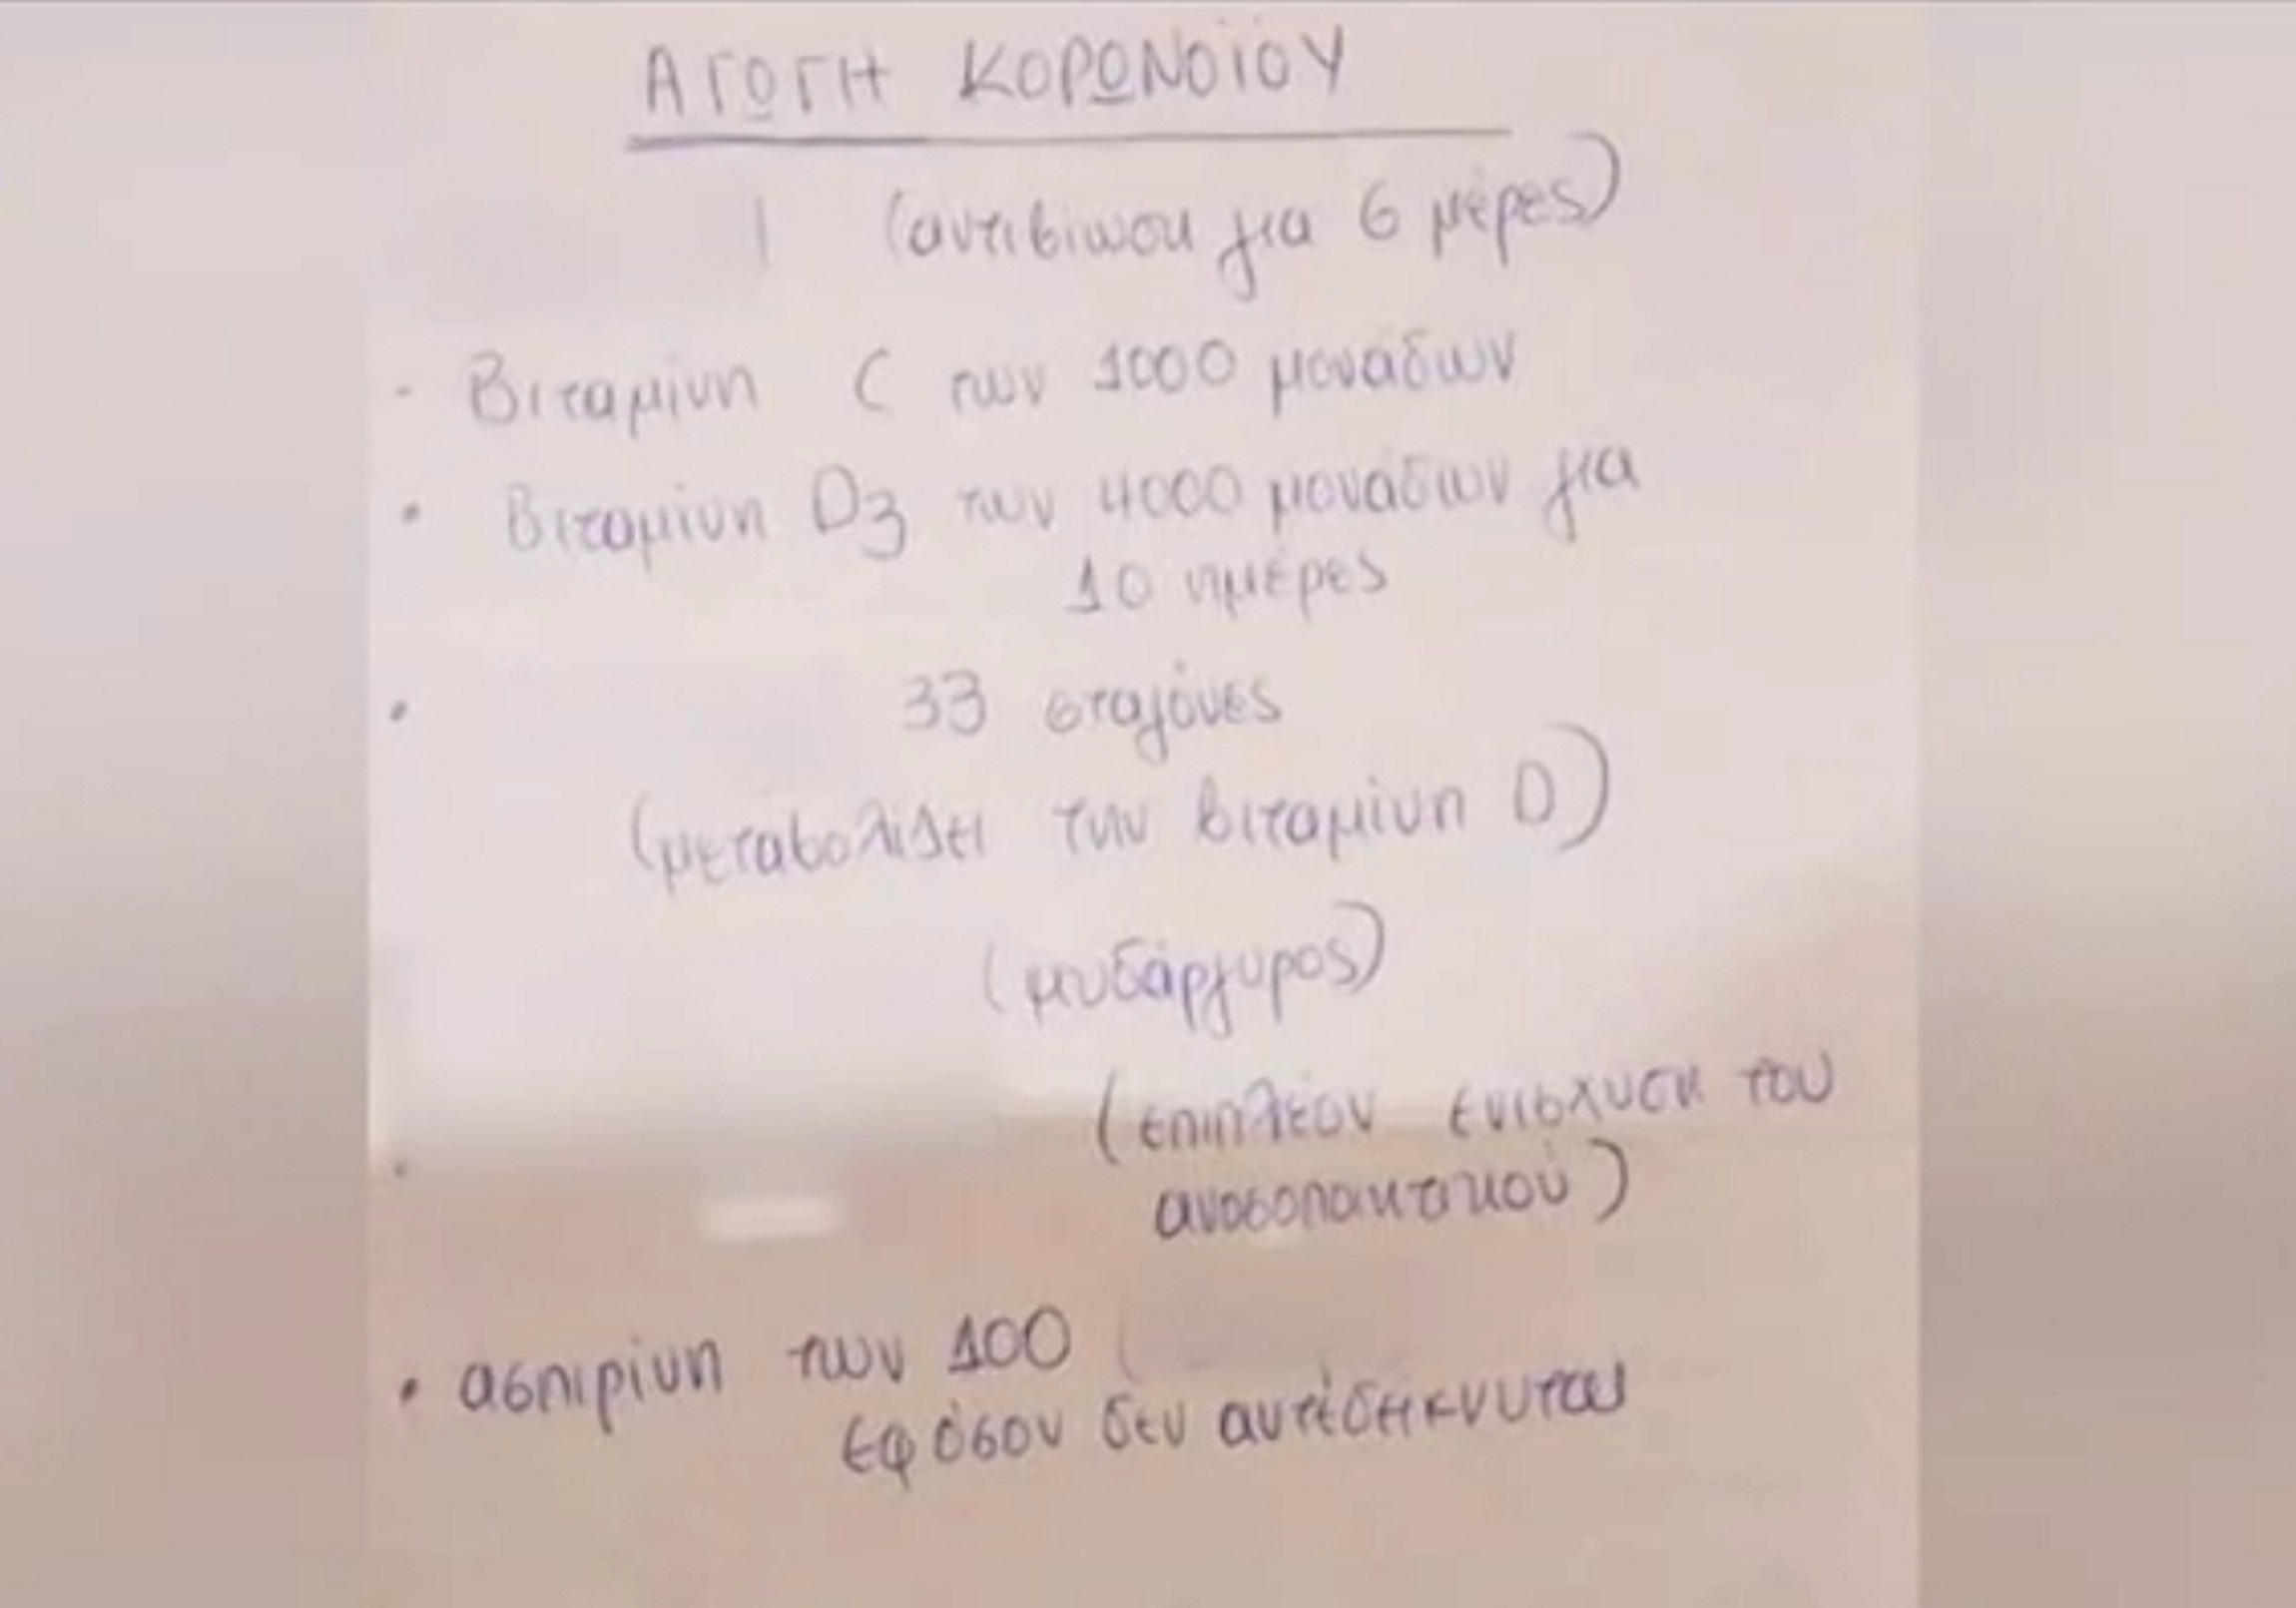 ΑΓΩΓΗ ΚΟΡΩΝΟΪΟΥ
(αντιβίωση για 6 μέρες)
- Βιταμίνη C των 1000 μονάδων
• Βιταμίνη D3 των 4000 μονάδων για
10 ημέρες
• 33 σταγόνες
(μεταβολίζει την βιταμίνη D)
(μυδάργυρος)
(επιπλέον ενίσχυση του
• ανοσοποιητικού)
• ασπιρίνη των 100
εφόσον δεν αντεδήκνυται